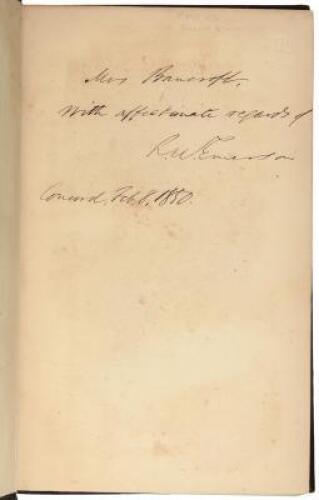 Mrs Bancroft,
With affectionate regards of
R.W. Emerson
Concord, Feb. 8, 1850.